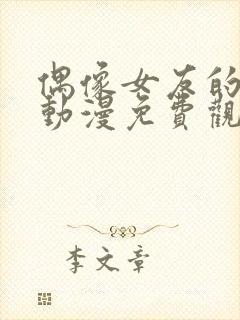 偶像女友的
動漫免費觀
李文章